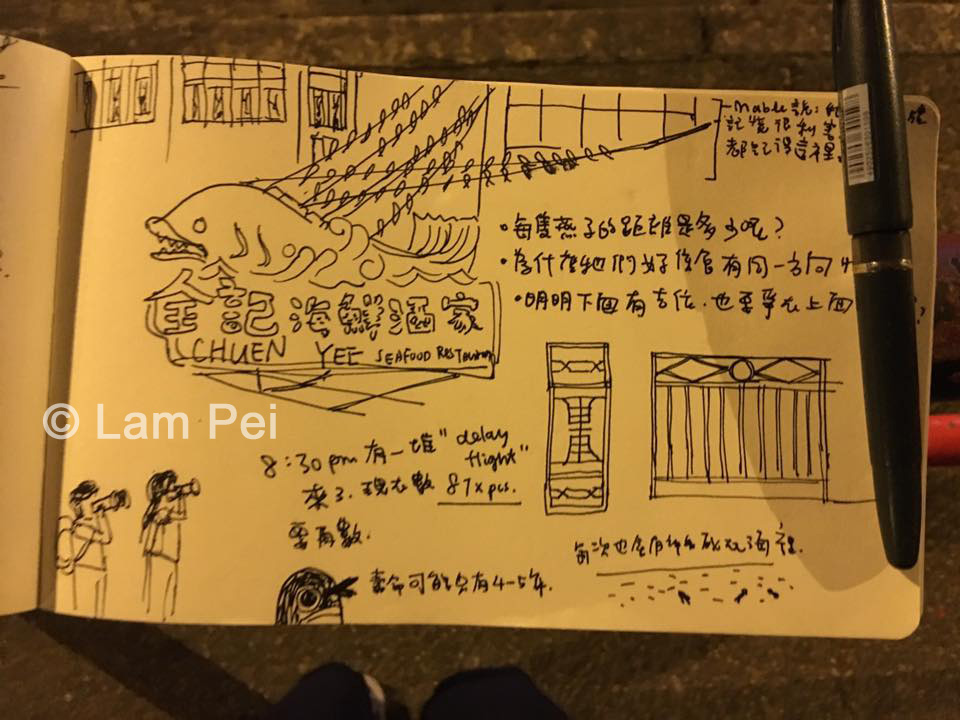 Mable說：
記憶很利害
都記得這裡。
•每隻燕子的距離是多少呢？
•為什麼牠們好像會有同一方向
•明明下面有吉位，也要爭去上面
全記海鮮酒家
CHUEN YEE SEAFOOD RESTAURANT
© Lam Pei
8:30pm 有一堆"delay flight"
來了，現在數 87xpcs.
要再數.
每次也會有
壽命可能只有4-5年.